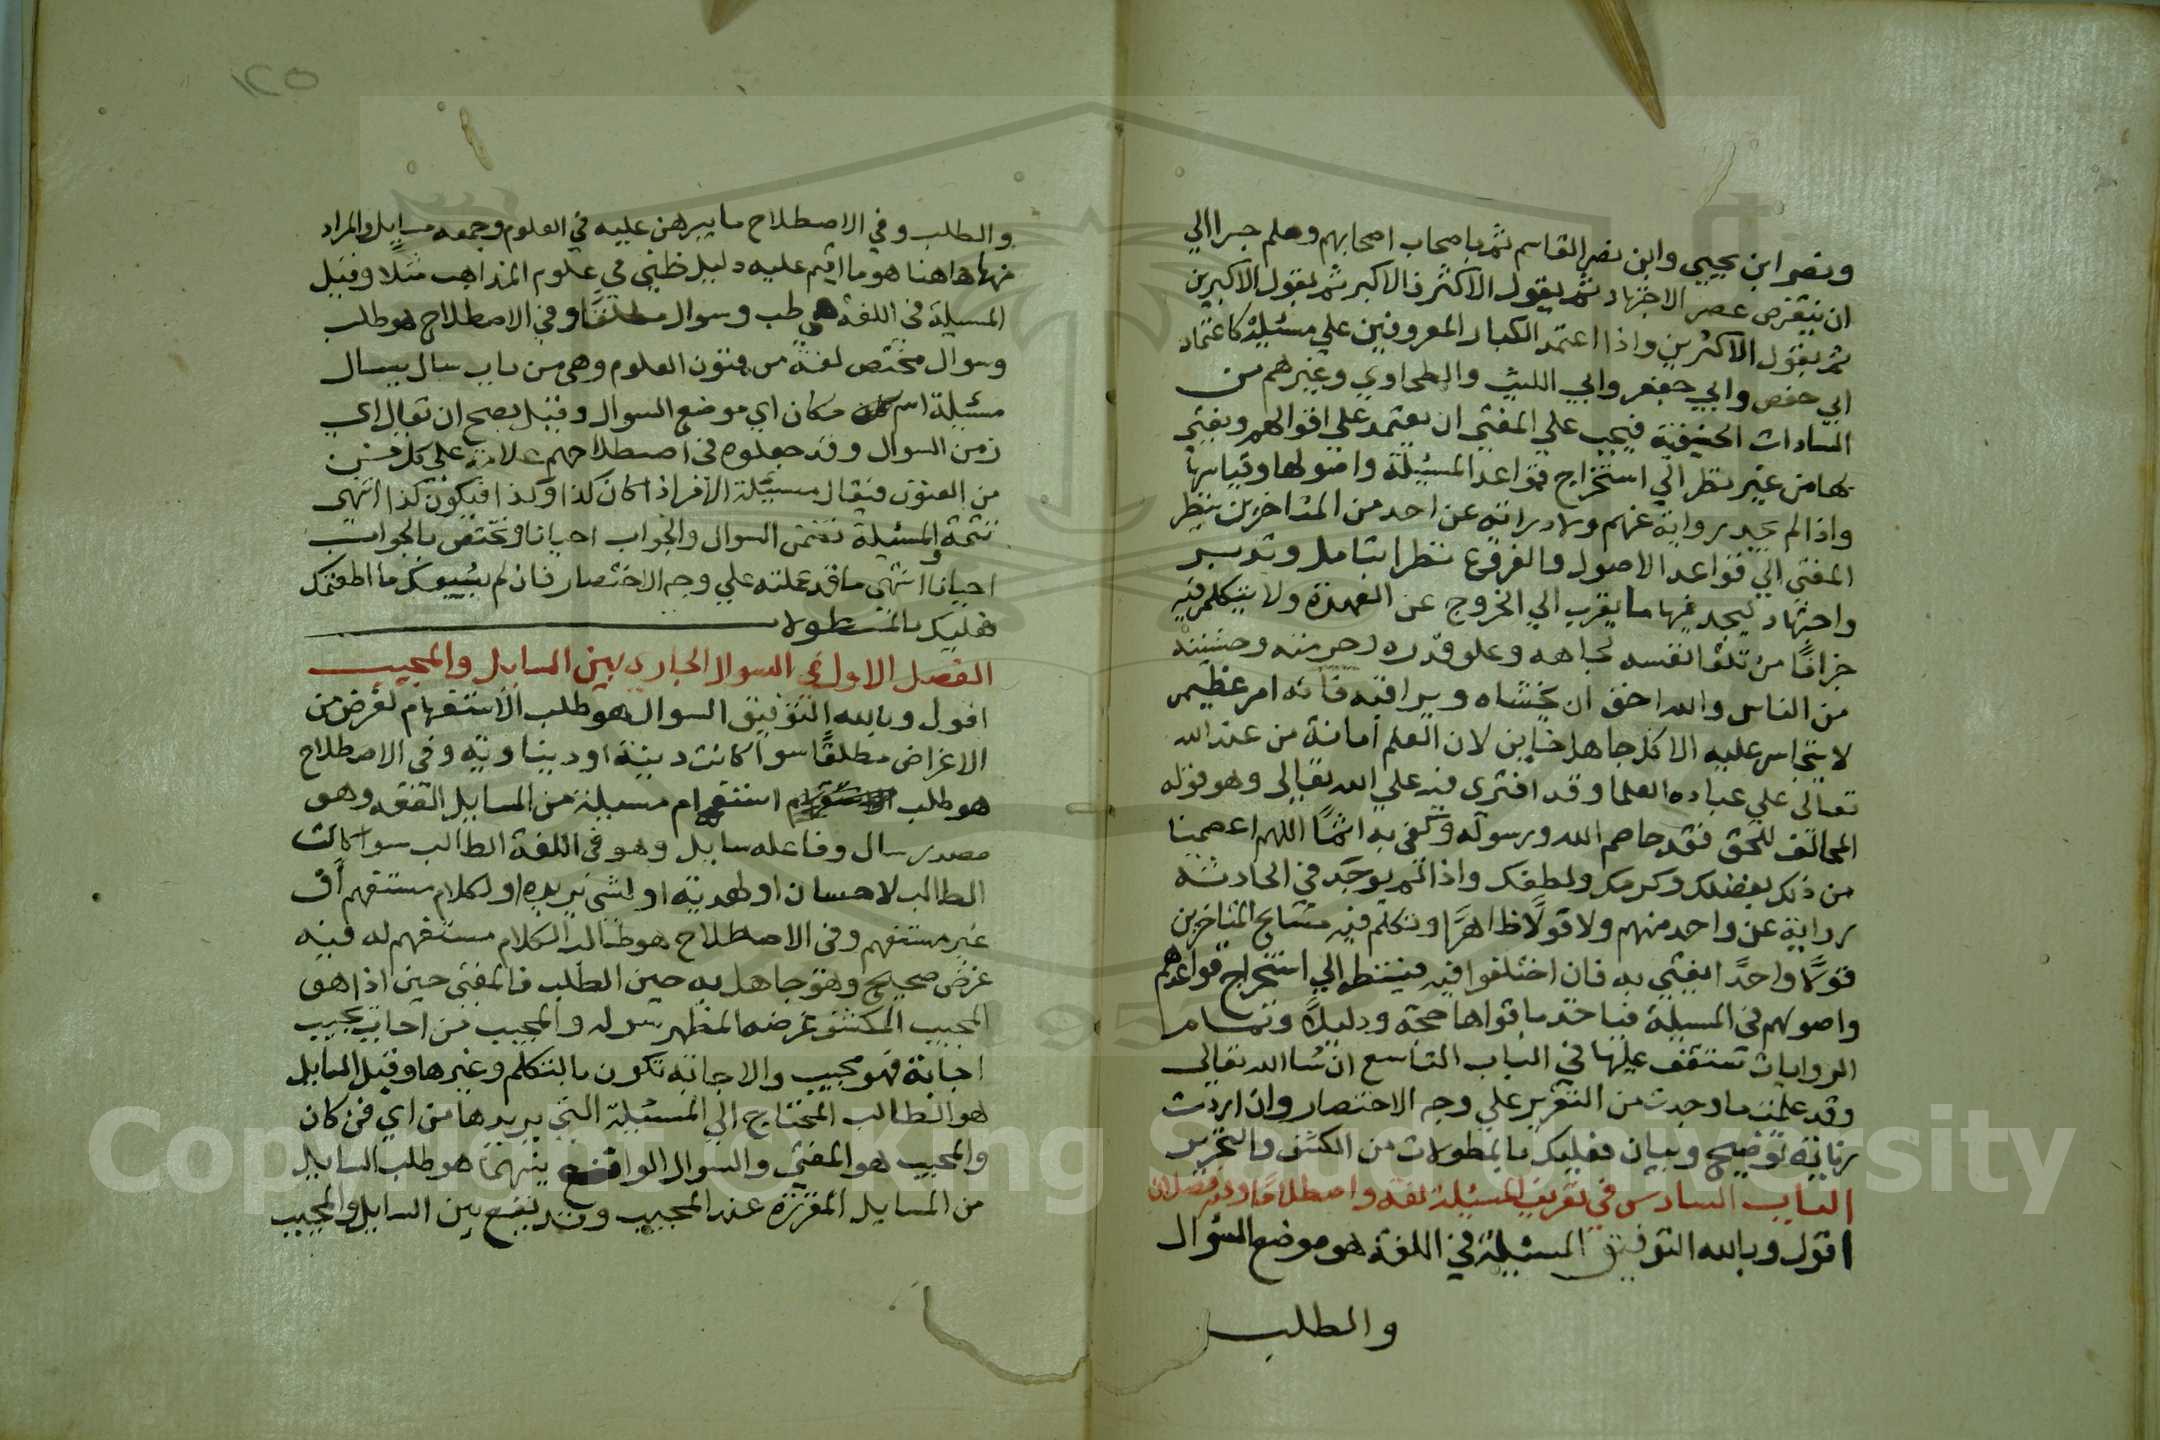 ونصر ابن يحيي وابن نصر القاسم ثم باصحاب اصحابهم وهلم جرا الي
ان ينقرض عصر الاجتهاد ثم يقول الاكثر فالاكبر ثم يقول الاكبرين
ثم يقول الاكثرين واذا اعتمد الكبار المعروفين علي مسئيلة كاعتماد
ابي حفص وابي جعفر وابي الليث والطحاوي وغيرهم من
السادات الحنيفية فيجب علي المفتي ان يعتمد علي اقوالهم ويفتي
بها من غير نظر الي استخراج قواعد المسئيلة واصولها وقياسها
واذا لم يجد رواية عنهم ولا دراية عن احد من المتاخرين ينظر
المفتي الي قواعد الاصول والفروع نظرا بتامل وتدبير
واجتهاد ليجد فيها ما يقرب الي الخروج عن العهدة ولا يتكلم فيه
جزافًا من تلقا نفسه لجاهه وعلو قدره وحرمته وخشيته
من الناس والله احق ان يخشاه ويراقبه فانه امر عظيم
لا يتجاسر عليه الا كل جاهل خاين لان العلم امانة من عند الله
تعالى علي عباده العلما وقد افتري فيه علي الله تعالى وهو قوله
المخالف للحق فقد خاصم الله ورسوله وكفي به اثمًا اللهم اعصمنا
من ذلك بفضلك وكرمك ولطفك واذا لم يوجد في الحادثة
رواية عن واحد منهم ولا قولًا ظاهرًا وتكلم فيه مشايخ المتاخرين
قولًا واحدًا يفتي به فان اختلفوا فيه فينظر الي استخراج قواعدهم
واصولهم في المسيلة فياخذ باقواها حجة ودليلًا وتمام
الروايات تستقف عليها في الباب التاسع ان شا الله تعالى
وقد علمت ما وجدت من التقرير علي وجه الاختصار وان اردت
زيادة توضيح وبيان فعليك بالمطولات من الكتب والتحرير
الباب السادس في تعريف المسئيلة لغة واصطلاحًا وفيه فصلان
اقول وبالله التوفيق المسئيلة في اللغة هو موضع السؤال
والطلب
١٢٥
والطلب وفي الاصطلاح ما يبرهن عليه في العلوم وجمعه مسايل والمراد
منها هاهنا هو ما اقيم عليه دليل ظني في علوم المذاهب مثلًا وقيل
المسيلة في اللغة هي طب وسوال مطلقًا وفي الاصطلاح هو طلب
وسوال مختص لفنة من فنون العلوم وهي من باب سال يسال
مسئيلة اسم مكان اي موضع السوال وقيل يصح ان تقال اي
زمن السوال وقد جعلوه في اصطلاحهم علامة علي كل فن
من الفنون فيقال مسيئلة الاقرا اذا كان كذا وكذا فيكون كذا انتهي
تتمة والمسئيلة تختص السوال والجواب احيانا وتختص بالجواب
احيانا انتهي ما قد علمته علي وجه الاختصار فان لم يشبعك ما اطعمتك
فعليك بالمطولات
الفصل الاول في السوال الجاري بين السايل والمجيب
اقول وبالله التوفيق السوال هو طلب الاستفهام لغرض من
الاغراض مطلقًا سوا كانت دينية او ديناوية وفي الاصطلاح
هو طلب استفهام مسيلة من المسايل الفقه وهو
مصدر سال وفاعله سايل وهو في اللغة الطالب سوا كانت
الطالب لاحسان او لهدية او لشي يريده او لكلام مستفهم او
غير مستفهم وفي الاصطلاح هو طالب الكلام مستفهم له فيه
غرض صحيح وهو جاهل به حين الطلب فالمفتي حين اذا هو
المجيب المكشف غرضه المظهر سوله والمجيب من اجاب يجيب
اجابة فهو مجيب والاجابة تكون بالتكلم وغيرها وقيل السايل
هو الطالب المحتاج الي المسئيلة التي يريدها من اي فن كان
والمجيب هو المفتي والسوال الواقع بينهما هو طلب السايل
من المسايل المقررة عند المجيب وقد يقع بين السايل والمجيب
Copyright © King Saud University
1957